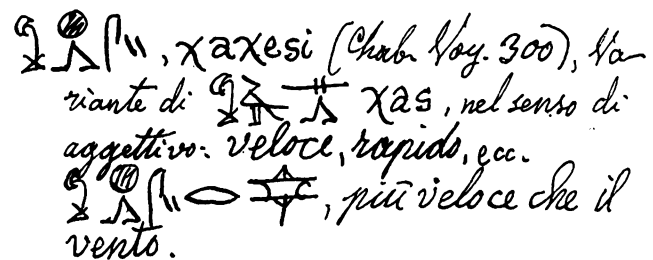 , χaχesi (Chab. Voy. 300), Va-
riante di χas, nel senso di
aggettivo: veloce, rapido, ecc.
, più veloce che il
vento.